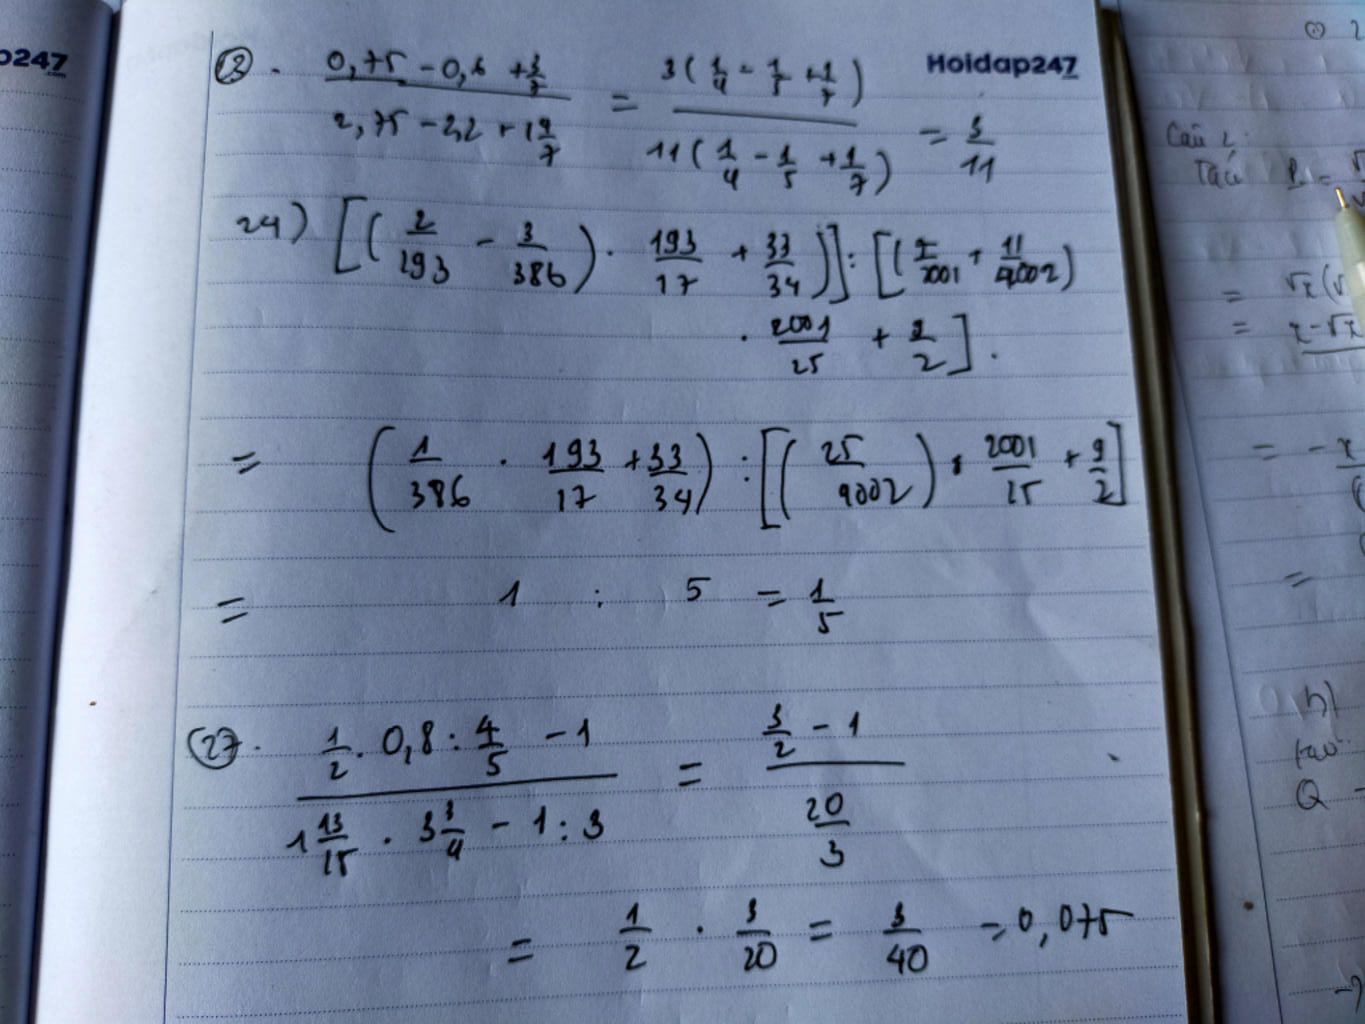 247
.com
Hoidap247
(13). (0,75 - 0,6 + 3/7) / (2,75 - 2,2 + 1 9/7) = 3(1/4 - 1/5 + 1/7) / 11(1/4 - 1/5 + 1/7) = 3/11
24) [(2/193 - 3/386) . 193/17 + 33/34)] : [(7/2001 + 11/4002)
. 2001/25 + 9/2].
= (1/386 . 193/17 + 33/34) : [(25/4002) . 2001/25 + 9/2]
= 1 : 5 = 1/5
(27). (1/2 . 0,8 : 4/5 - 1) / (1 13/15 . 3 3/4 - 1 : 3) = (3/2 - 1) / (20/3)
= 1/2 . 3/20 = 3/40 = 0,075
Câu 2:
= √x(√
= x-√x
= -x
=
h)
Q